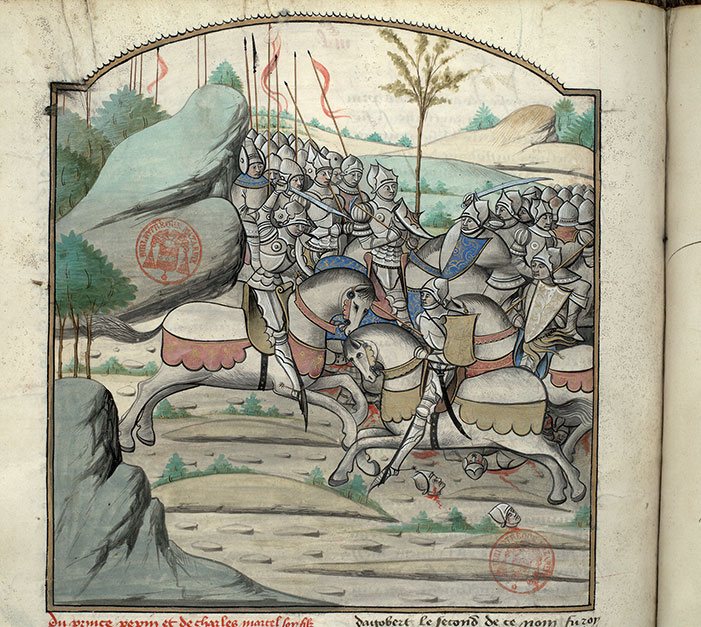 Du prince pepin et de charles martel son filz
dagobert le second de ce nom fu roy